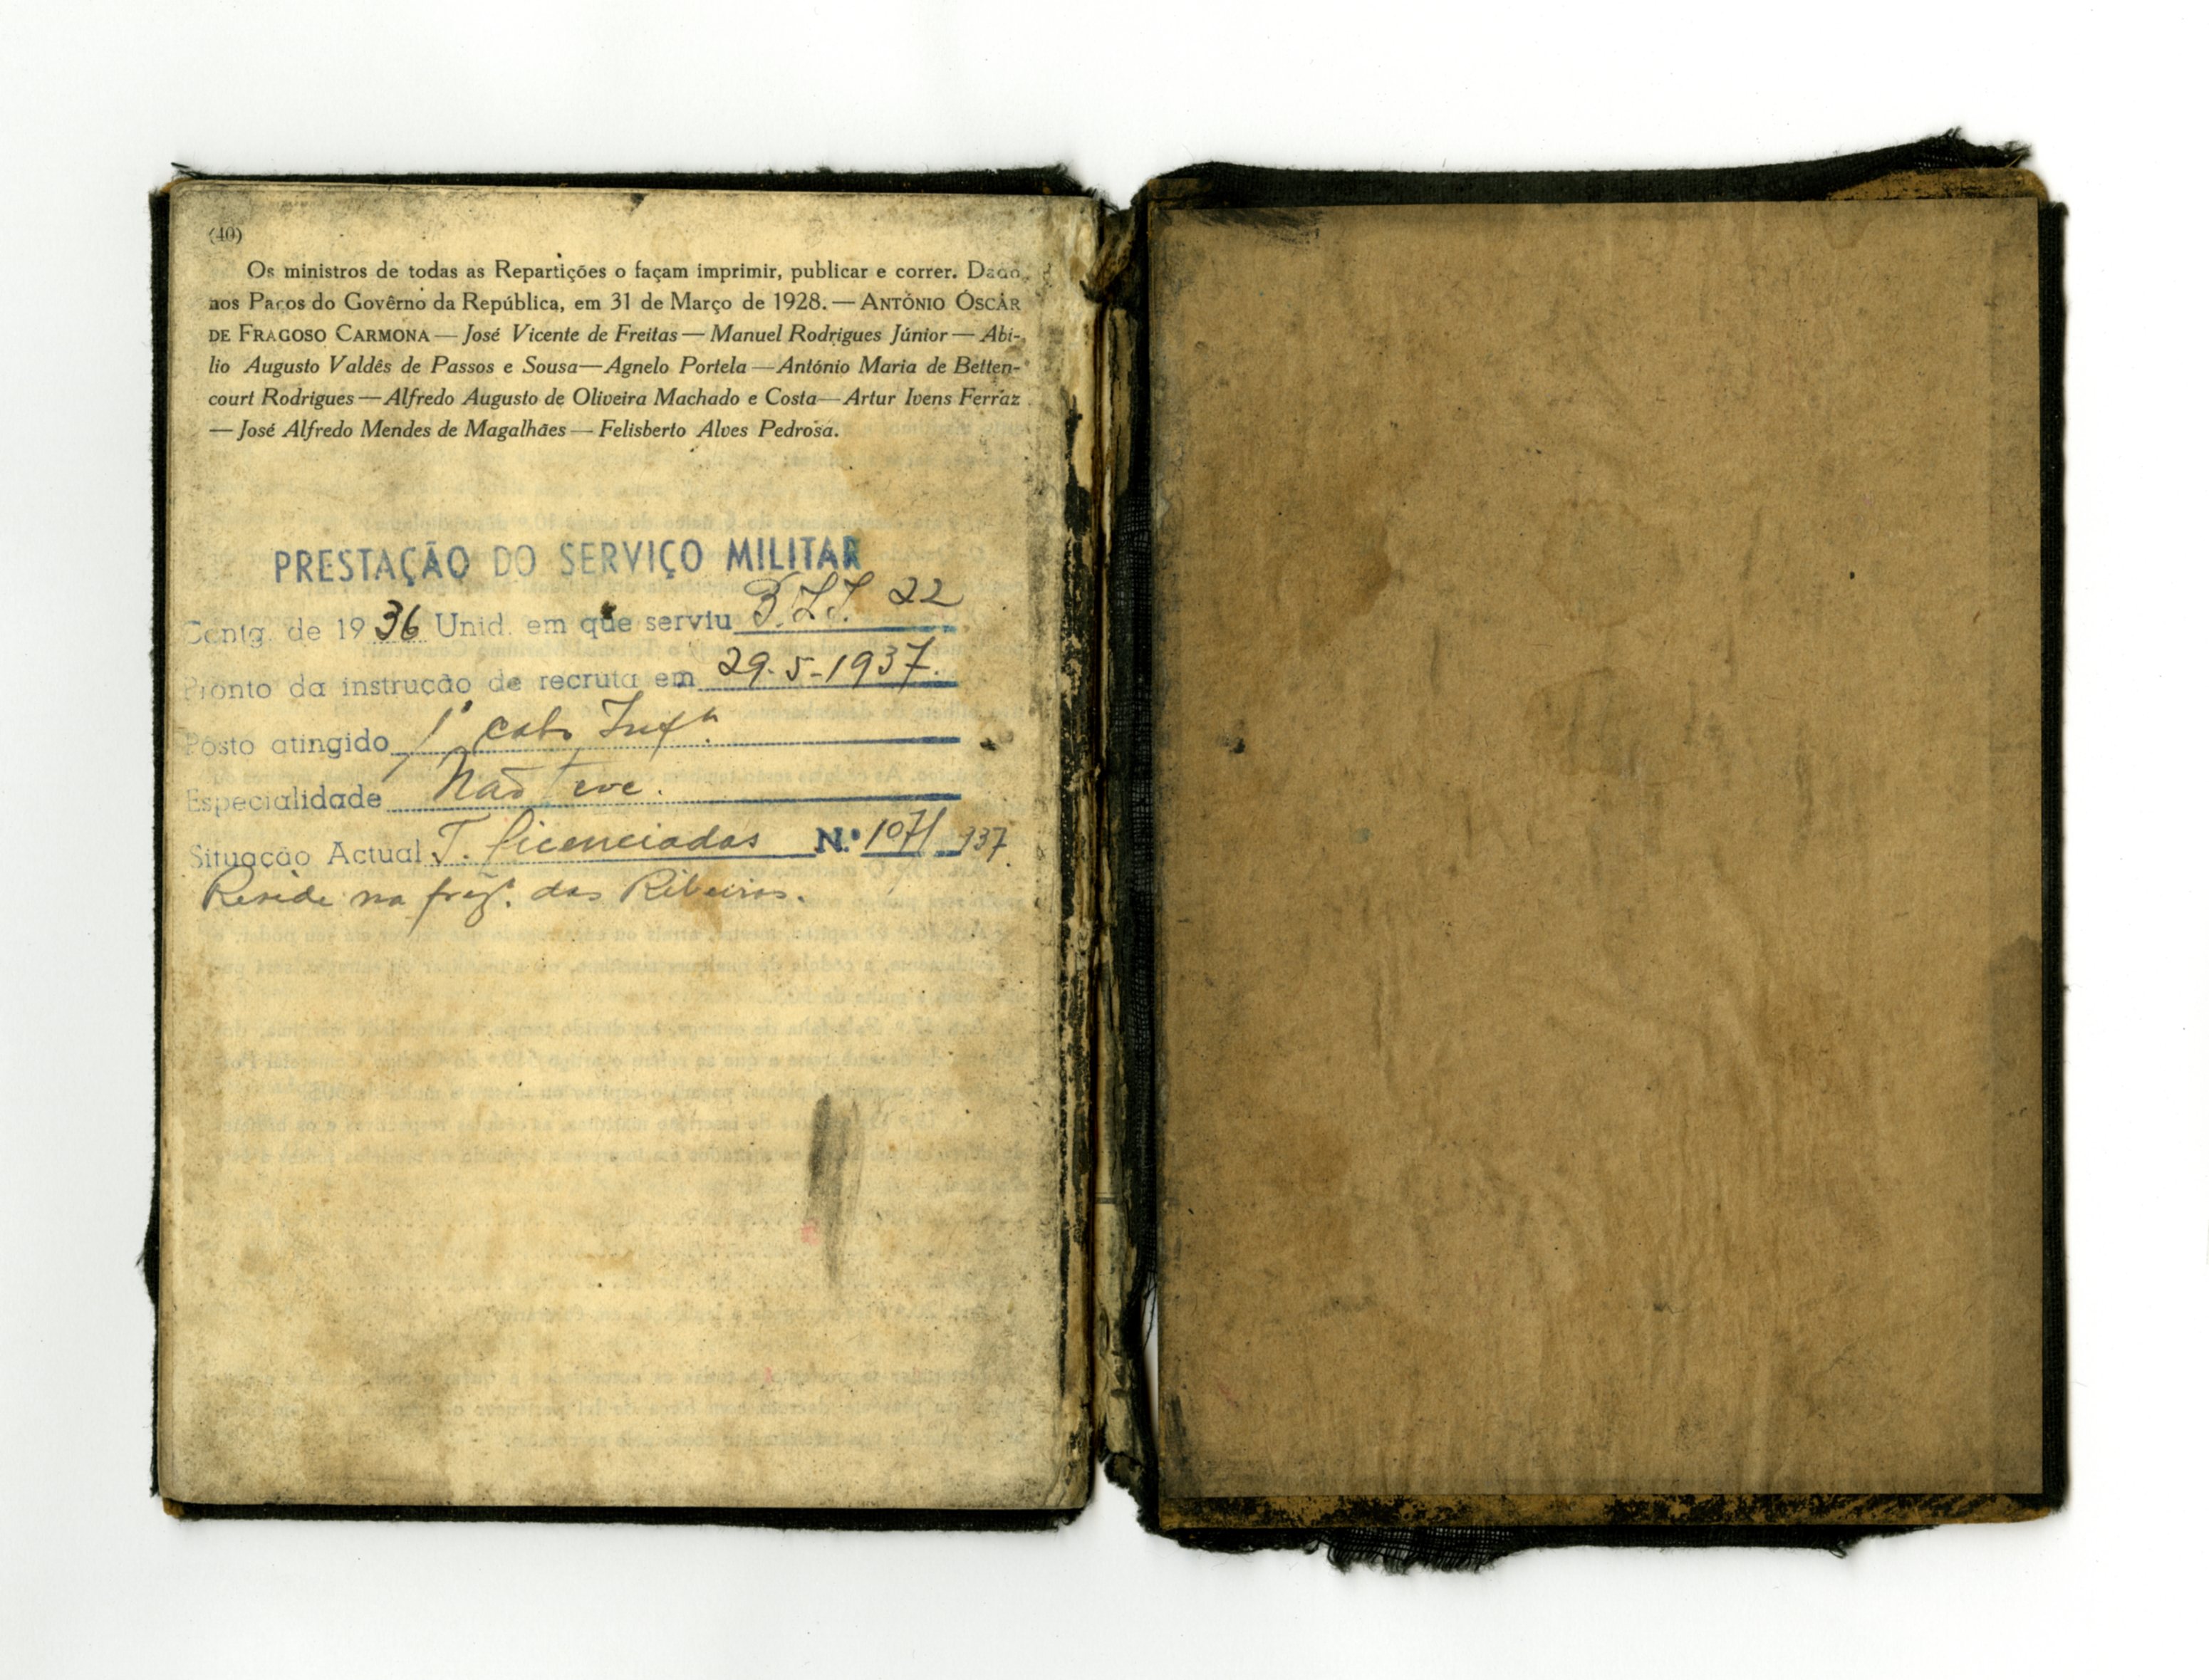 (40)
Os ministros de todas as Repartições o façam imprimir, publicar e correr. Dado
aos Paços do Govêrno da República, em 31 de Março de 1928. — ANTÓNIO ÓSCAR
DE FRAGOSO CARMONA — José Vicente de Freitas — Manuel Rodrigues Júnior — Abí-
lio Augusto Valdês de Passos e Sousa — Agnelo Portela — António Maria de Betten-
court Rodrigues — Alfredo Augusto de Oliveira Machado e Costa — Artur Ivens Ferraz
— José Alfredo Mendes de Magalhães — Felisberto Alves Pedrosa.
PRESTAÇÃO DO SERVIÇO MILITAR
Contg. de 1936 Unid. em que serviu 22
Pronto da instrução de recruta em 29-5-1937.
Pôsto atingido 1º cabo Infª
Especialidade Não teve.
Situação Actual T. licenciadas N.º 107/937.
Reside na freg. das Ribeiras.